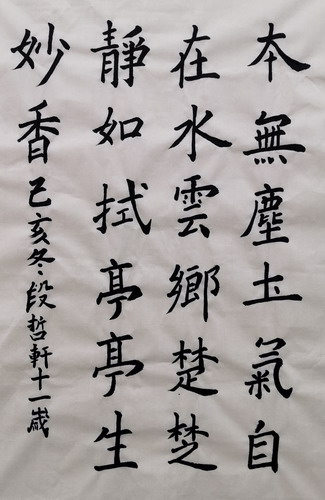 本無塵土氣自
在水雲鄉楚楚
靜如拭亭亭生
妙香己亥冬段哲軒十一歲